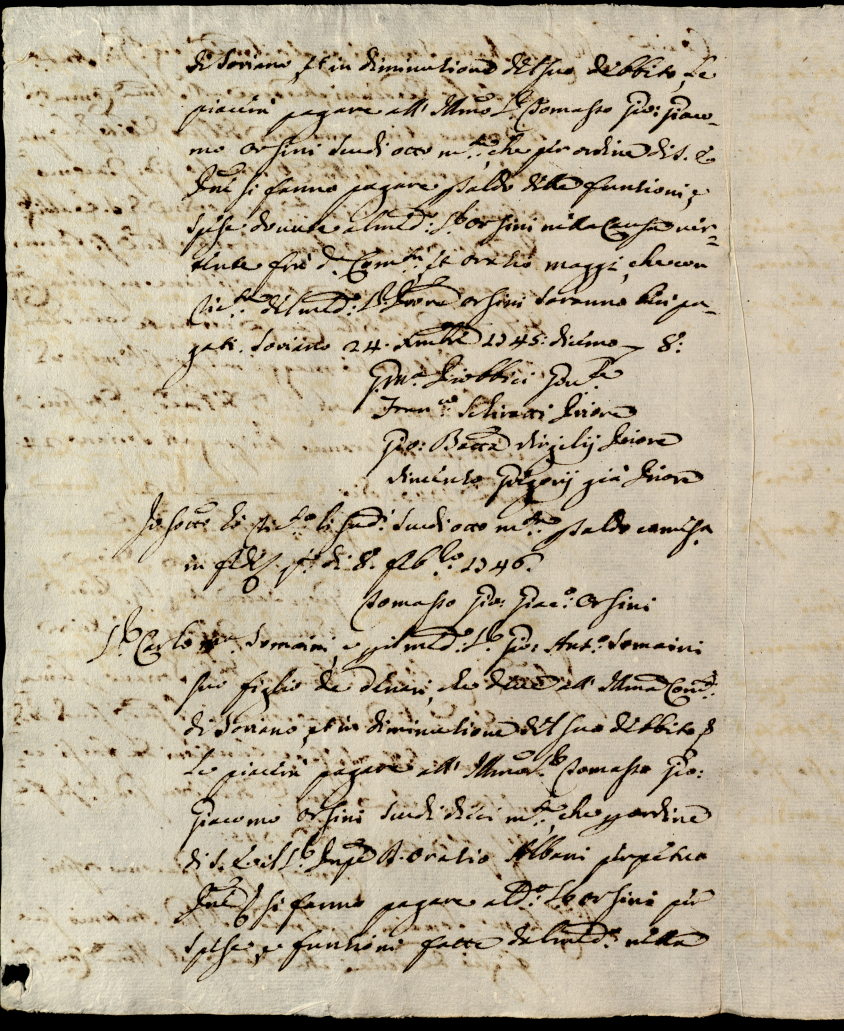 di Soriano, et in diminutione del suo debbito, le
piaccia pagare all' Illmo Sr. Tomasso Gio: Giaco-
mo Orsini scudi otto mta., che per ordine di S. E.
si fanno pagare p saldo delle funtioni, e
spese dovute al med:o Sr Orsini nella Causa ver-
tente frà d.a Com.tà, et Oratio Maggi, che con
ric.ta del med:o Sr. Orsini saranno ben pa-
gati. Soriano 24. Xmbre 1745. diciamo 8:
Fran.co Priore
Gio: Batta Virgilij Priore
Vincenzo Gregorij già Priore
Io sotto hò ric.to li sud.i scudi otto m.ta p saldo come s.a
in fede q.to dì 8. Febb.ro 1746.
Tomasso Gio: Giac.o Orsini
Sr. Carlo Somaini, e p il med.o Sr. Gio: Ant.o Somaini
suo figlio de denari, che deve all' Illma Com.tà
di Soriano, et in diminutione del suo debbito,
le piaccia pagare all' Illmo Sr. Tomasso Gio:
Giacomo Orsini scudi dieci m.ta, che p ordine
di S. Ecc. Sr. D. Oratio Albani perpetuo
si fanno pagare al d.o Sr Orsini per
spese, e funtioni fatte dal med.o nella